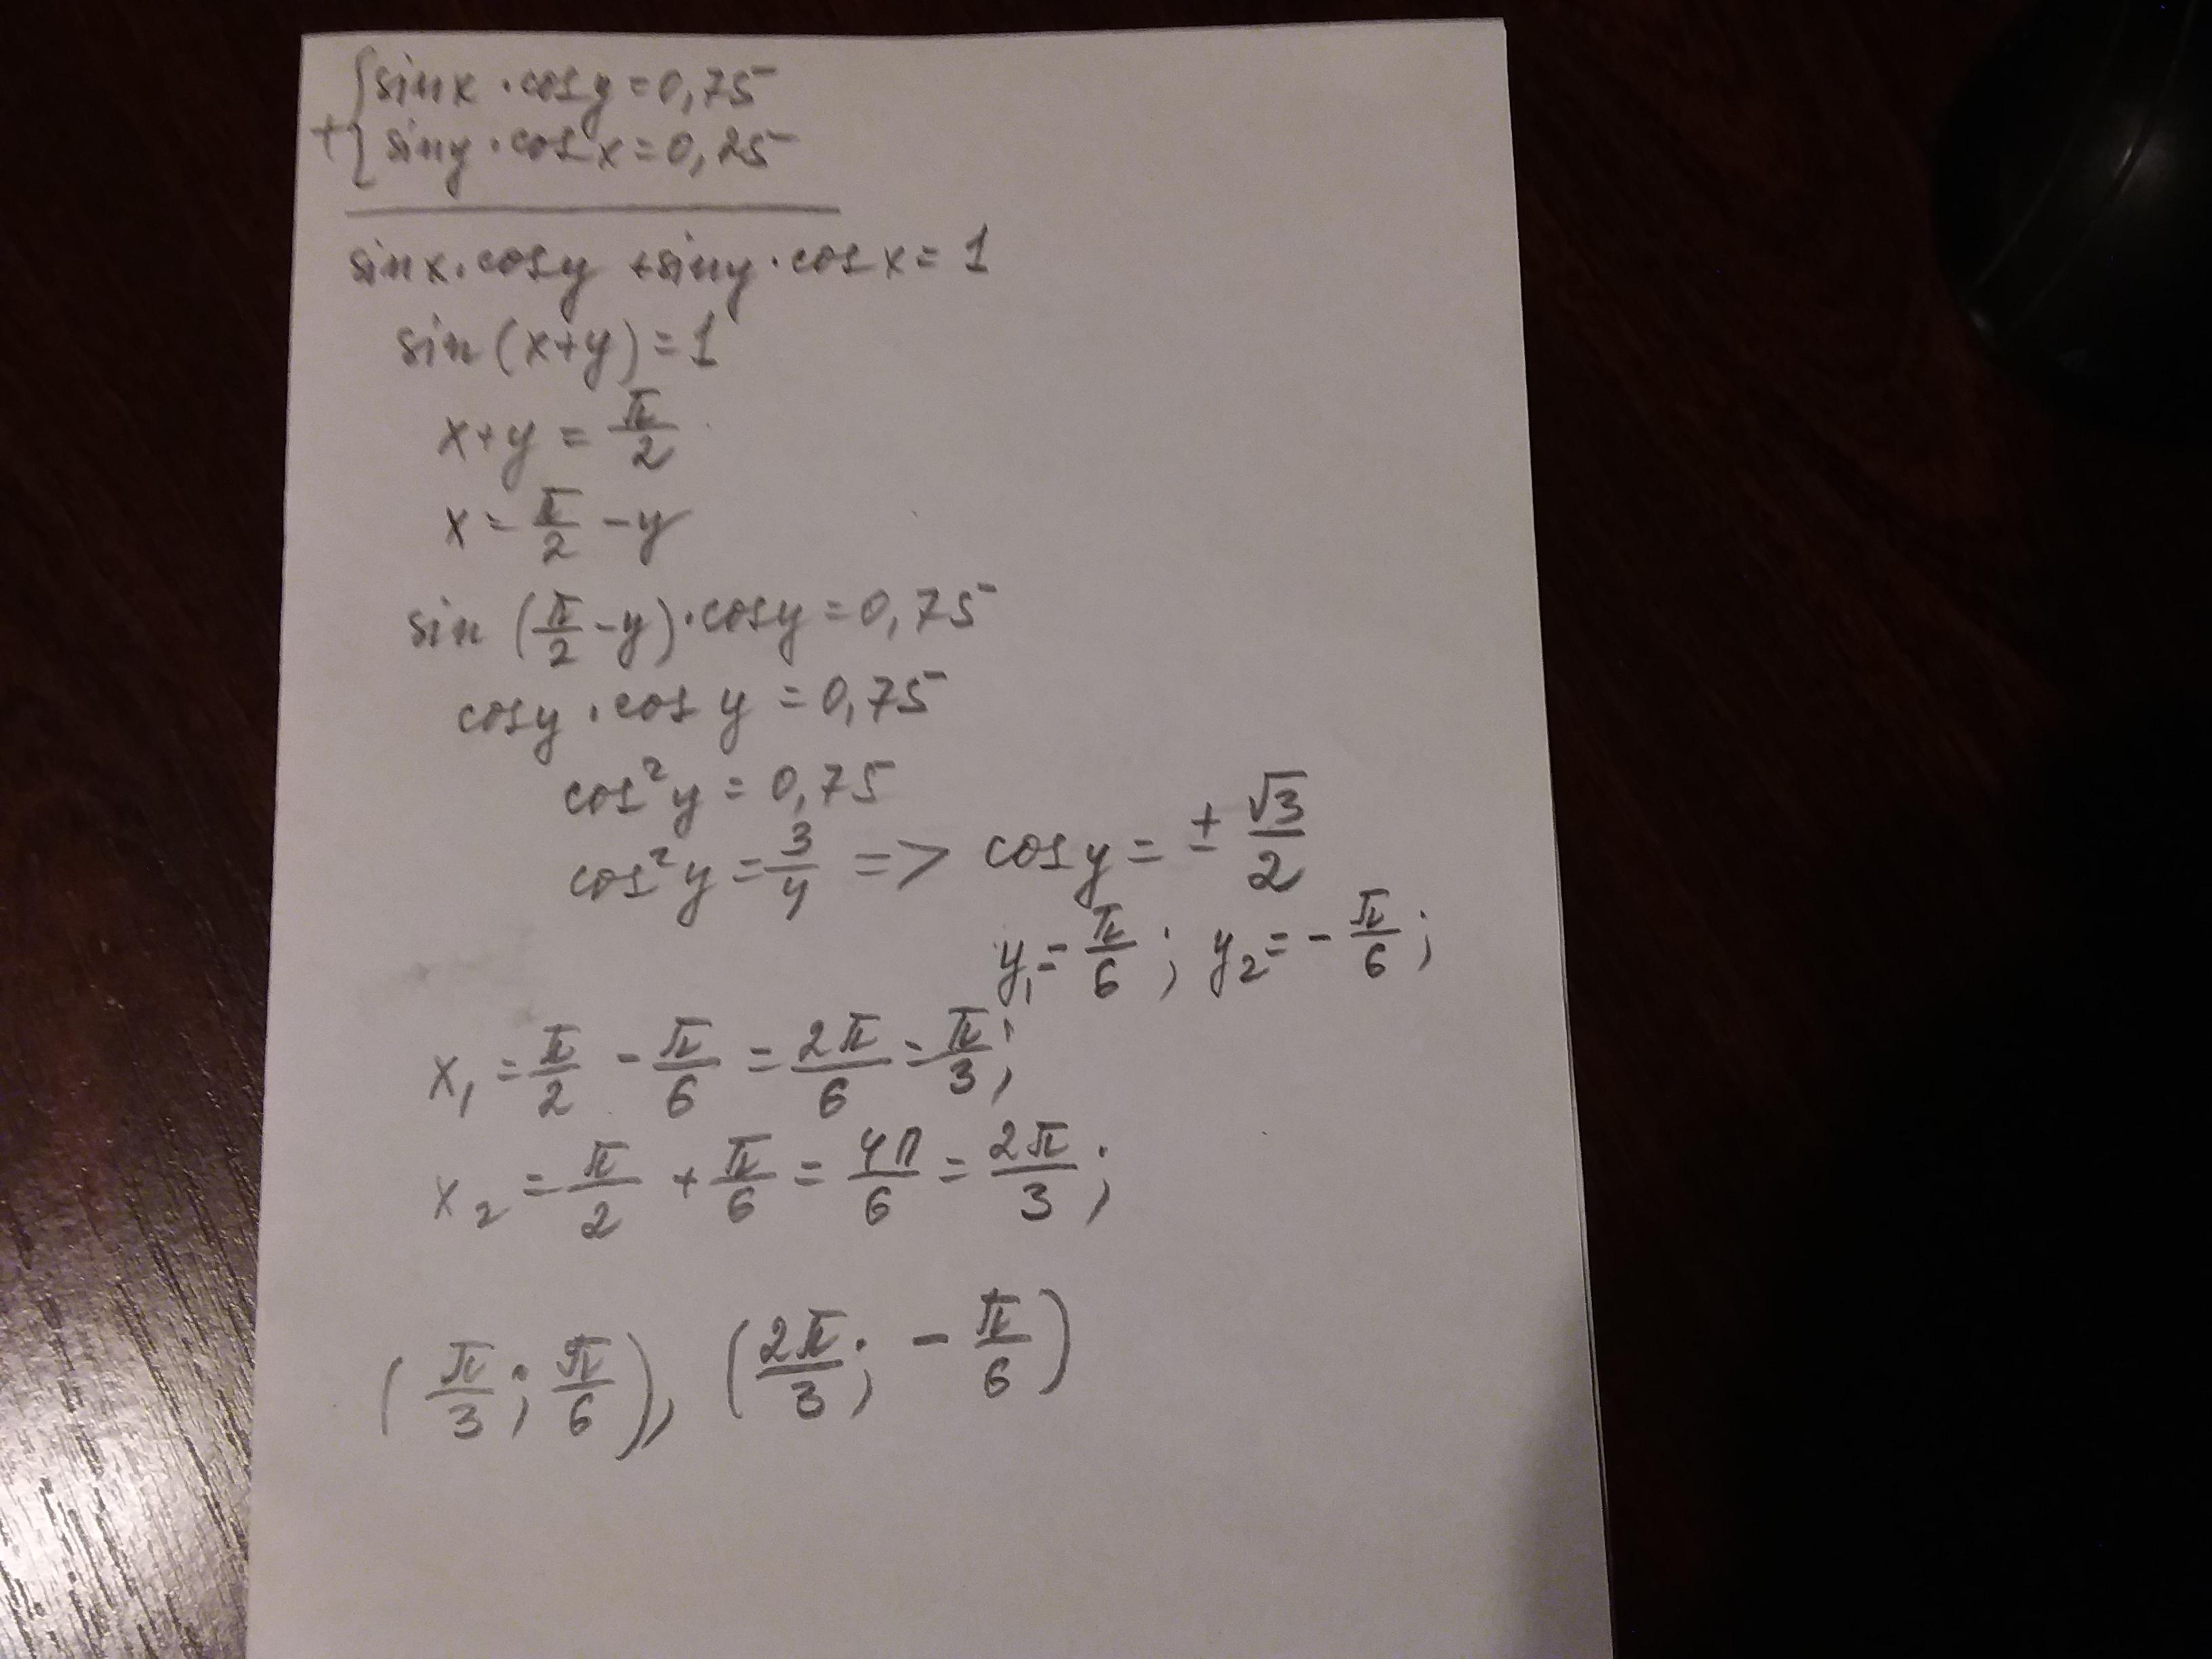 +{ sinx · cosy = 0,75
siny · cosx = 0,25
sinx · cosy + siny · cosx = 1
sin(x+y) = 1
x+y = π/2
x = π/2 - y
sin(π/2 - y) · cosy = 0,75
cosy · cosy = 0,75
cos²y = 0,75
cos²y = 3/4 => cosy = ± √3/2
y₁ = π/6 ; y₂ = - π/6 ;
x₁ = π/2 - π/6 = 2π/6 = π/3 ;
x₂ = π/2 + π/6 = 4π/6 = 2π/3 ;
(π/3 ; π/6), (2π/3 ; - π/6)